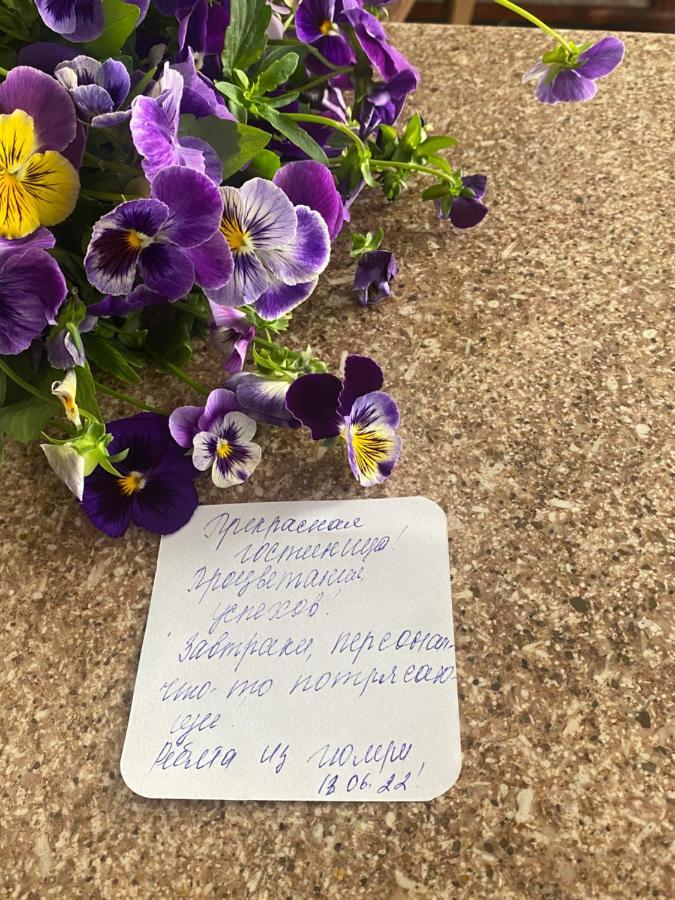 Прекрасная
гостиница!
Процветания,
успехов!
Завтраки, персонал-
что-то потрясаю-
щее.
Ребята из
13.06.22!